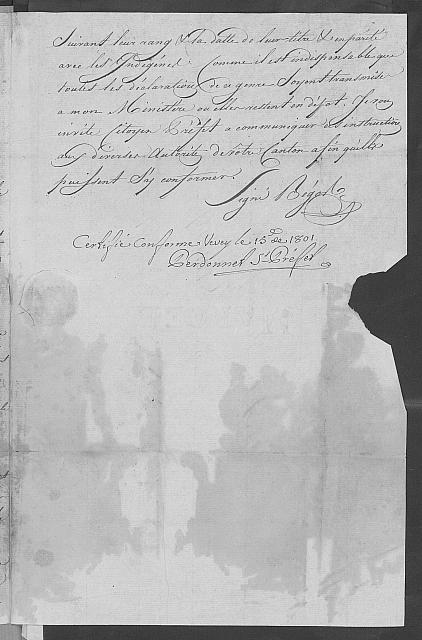 Suivant leur rang & la datte de leur titre & en parité
avec les Indigenes. Comme il est indispensable que
toutes les declarations de ce genre soyent transmise
a mon Ministere ou elles restent en dépot, Je vous
invite Citoyen Préfet a communiquer ces instructions
aux diverses Autorités de votre Canton afin quelles
puissent s'y conformer.
Signé Bégoz
Certifié Conforme Vevey le 15 de 1801
Perdonnet Ss Préfet